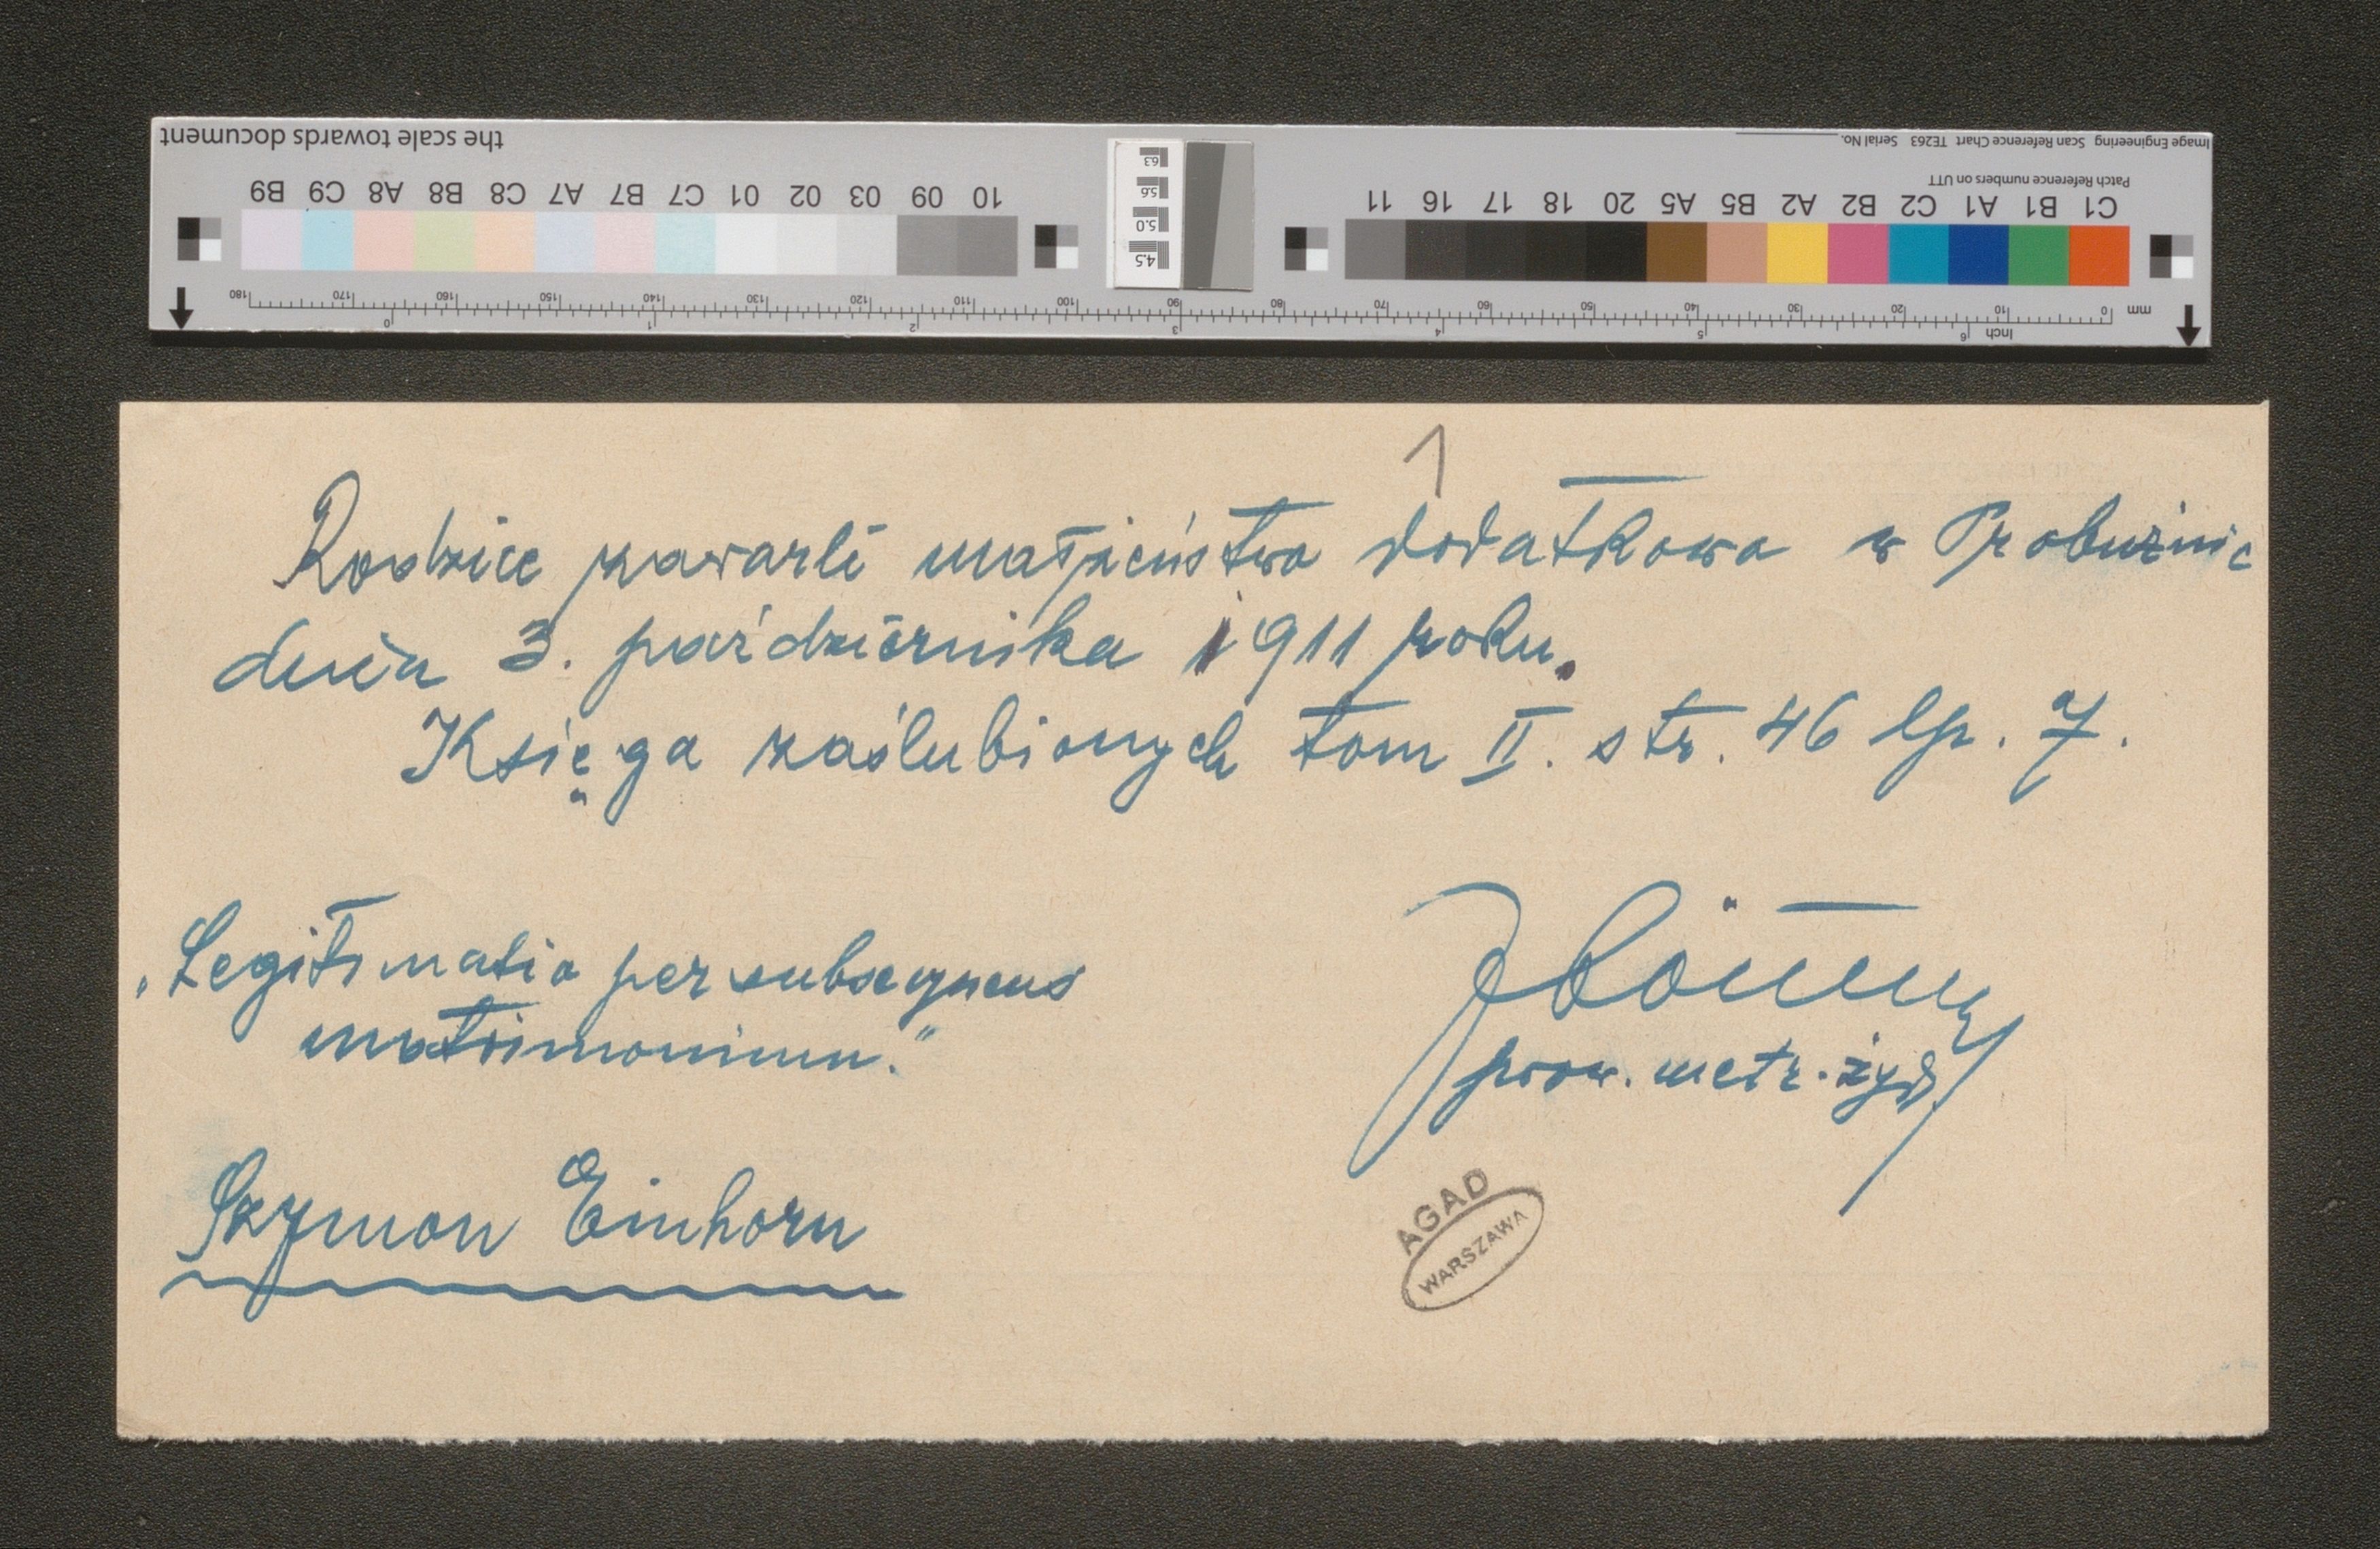 the scale towards document
Image Engineering Scan Reference Chart TE263 Serial No.
Patch Reference numbers on UTT
B9 C9 A8 B8 C8 A7 B7 C7 01 02 03 09 10
11 16 17 18 20 A5 B5 A2 B2 C2 A1 B1 C1
6.3
5.6
5.0
4.5
180 170 160 150 140 130 120 110 100 90 80 70 60 50 40 30 20 10 0 mm
0 1 2 3 4 5 6 Inch
1
Rodzice zawarli małżeństwo dodatkowo w Probużnie
dnia 3. października 1911 roku.
Księga zaślubionych tom II. str. 46 lp. 7.
„Legitimatio per subsequens
matrimonium."
prow. metr. żyd.
Szymon Einhorn
AGAD
WARSZAWA